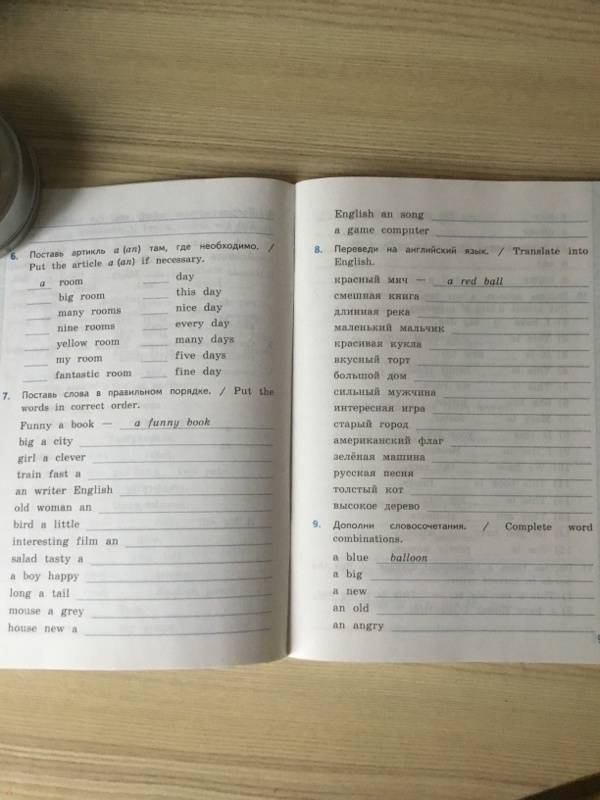 6. Поставь артикль a (an) там, где необходимо. /
Put the article a (an) if necessary.
a room
big room
many rooms
nine rooms
yellow room
my room
fantastic room
day
this day
nice day
every day
many days
five days
fine day
7. Поставь слова в правильном порядке. / Put the
words in correct order.
Funny a book — a funny book
big a city
girl a clever
train fast a
an writer English
old woman an
bird a little
interesting film an
salad tasty a
a boy happy
long a tail
mouse a grey
house new a
English an song
a game computer
8. Переведи на английский язык. / Translate into
English.
красный мяч — a red ball
смешная книга
длинная река
маленький мальчик
красивая кукла
вкусный торт
большой дом
сильный мужчина
интересная игра
старый город
американский флаг
зелёная машина
русская песня
толстый кот
высокое дерево
9. Дополни словосочетания. / Complete word
combinations.
a blue balloon
a big
a new
an old
an angry